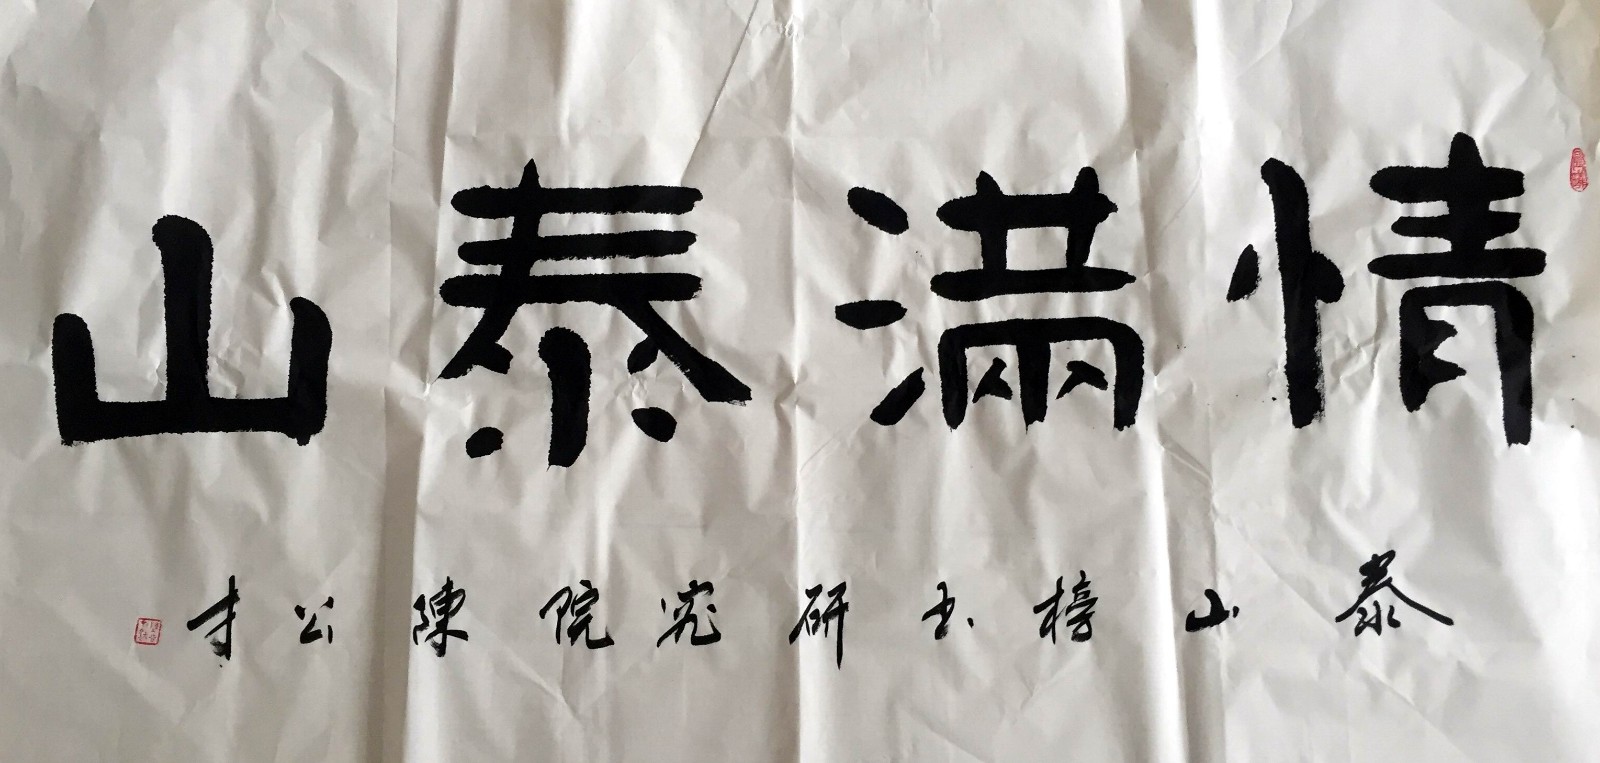 情滿泰山
泰山榜书研究院陳公才